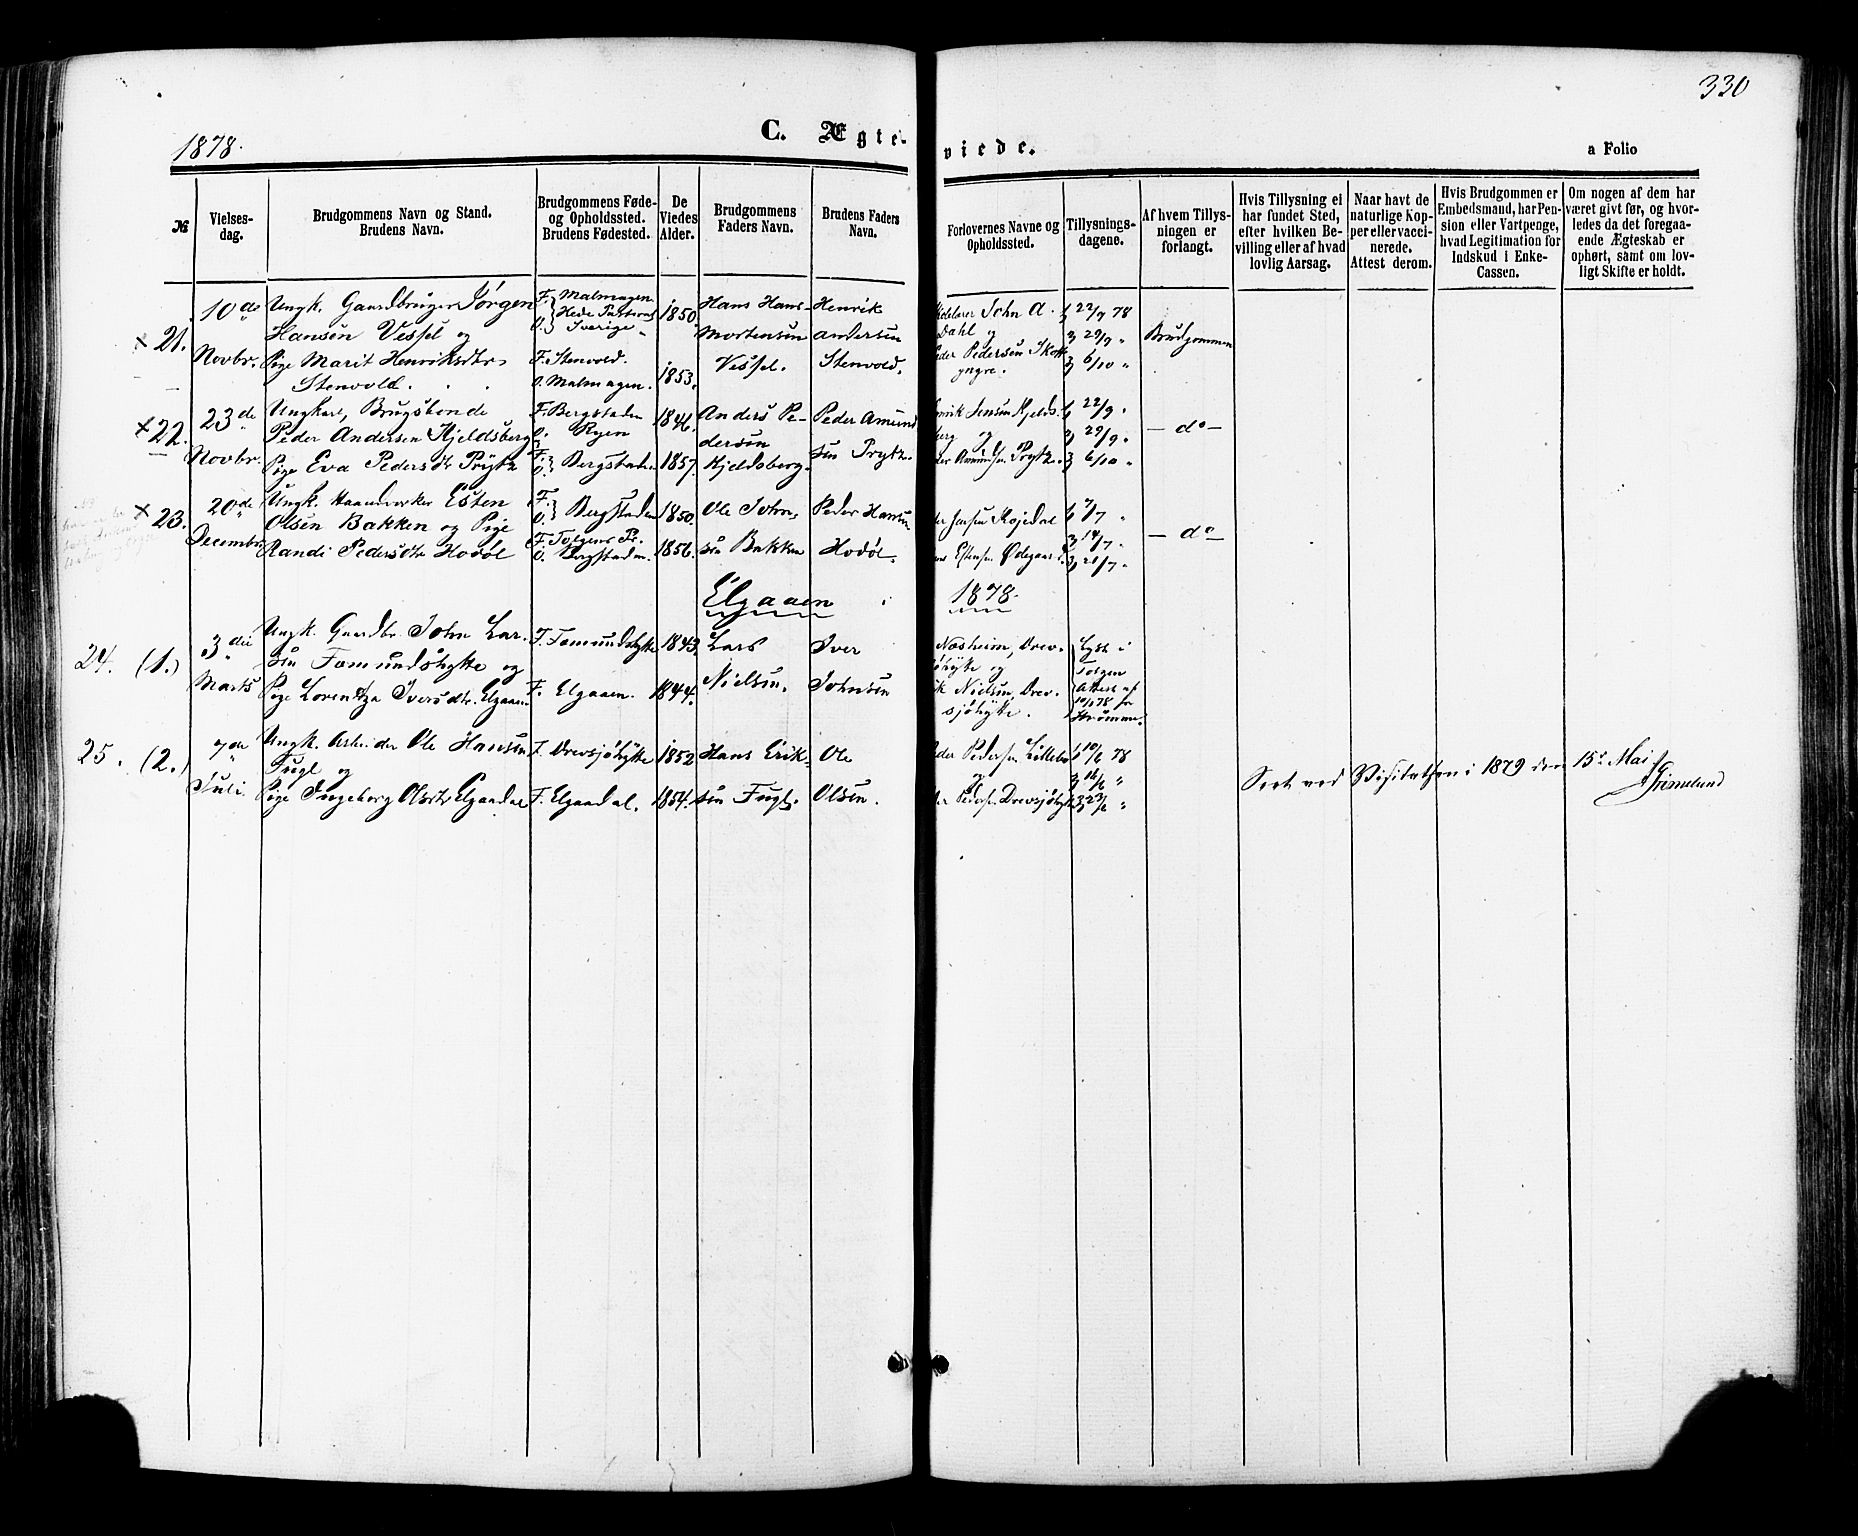 330
1878.
C. Ægte-
viede.
a Folio
№
Vielses-
dag.
Brudgommens Navn og Stand.
Brudens Navn.
Brudgommens Føde-
og Opholdssted.
Brudens Fødested.
De
Viedes
Alder.
Brudgommens
Faders Navn.
Brudens Faders
Navn.
Forlovernes Navne og
Opholdssted.
Tillysnings-
dagene.
Af hvem Tillys-
ningen er
forlangt.
Hvis Tillysning ei
har fundet Sted,
efter hvilken Be-
villing eller af hvad
lovlig Aarsag.
Naar havt de
naturlige Kop-
per eller vacci-
nerede.
Attest derom.
Hvis Brudgommen er
Embedsmand, har Pen-
sion eller Vartpenge,
hvad Legitimation for
Indskud i Enke-
Cassen.
Om nogen af dem har
været givt før, og hvor-
ledes da det foregaa-
ende Ægteskab er
ophørt, samt om lov-
ligt Skifte er holdt.
× 21.
10de
Novbr.
Ungk. Gaardbruger Jörgen
Hansen Vessel og
Pige Marit Henriksdtr
Stenvold.
F. Malmagen
Hede Pastorat
O. Sverige
F. Stenvold.
O. Malmagen.
1850.
1853.
Hans Hans-
Mortensen
Vessel.
Henrik
Andersen
Stenvold.
John A.
Dahl og
Peder Pedersen Skott
yngre.
22/9 78
29/9 "
6/10 "
Brudgommen
× 22.
23de
Novbr.
Ungkarl, Brugsbonde
Peder Andersen Kjeldsberg
Pige Eva Pedersdtr Prytz
F. Bergstaden
O. Ryen
F. O. Bergstaden
1846.
1857.
Anders Pe-
dersen
Kjeldsberg.
Peder Amund
sen Prytz.
Jensen Kjelds-
berg og
Amundsen Prytz.
22/9 "
29/9 "
6/10 "
— do —
× 23.
20de
Decembr.
Ungk. Haandverker Esten
Olsen Bakken og Pige
Randi Pedersdtr Hodöl
F. O. Bergstaden
F. Tolgens Pr.
O. Bergstaden
1850.
1856.
Ole John-
sen Bakken
Peder Hansen
Hodöl.
Jensen
Estensen Ødegaard.
7/7 "
14/7 "
21/7 "
— do —
Elgaaen
1878.
24. (1.)
3die
Marts
Ungk. Gaardbr. John Lar-
sen Fæmundshytte og
Pige Lorentza Iversdtr. Elgaaen
F. Fæmundshytte
F. Elgaaen.
1843.
1844.
Lars
Nielsen.
Iver
Johnsen
Næsheim, Drev-
sjöhytte og
Nielsen, Drev-
sjöhytte.
Lyst i
Tolgen
Attest af
10/2 78 fr
Strömme.
25. (2.)
7de
Juli
Ungk. Arbeider Ole Hansen
Fugl og
Pige Ingeborg Olsdtr Elgaadal
F. Drevsjöhytte
F. Elgaadal.
1852
1854.
Hans Erik-
sen Fugl.
Ole
Olsen.
Peder Pedersen Lillebo
og
Pedersen Drevsjöhytte
10/6 78
16/6 "
23/6 "
Seet ved Visitatsen i 1879 den 15de Mai
Grimelund